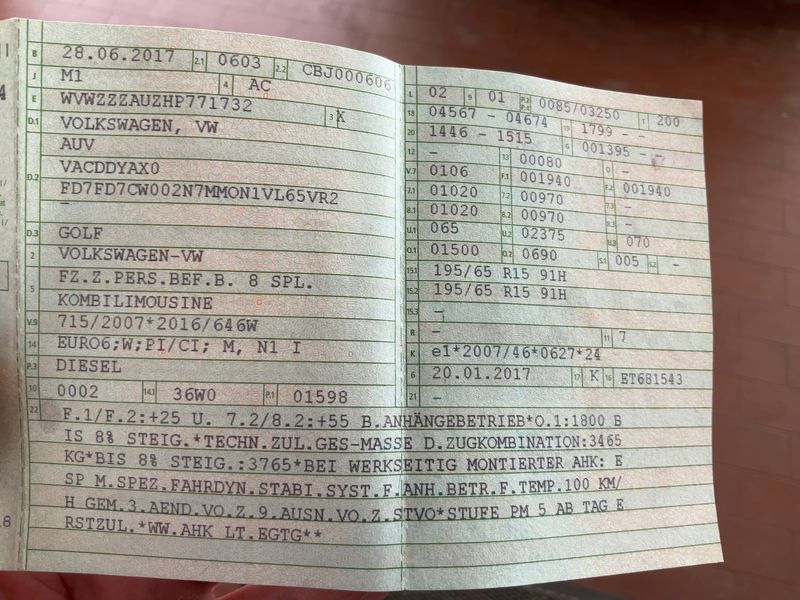 B 28.06.2017 2.1 0603 2.2 CBJ000606
J M1 4 AC
E WVWZZZAUZHP771732 3 X
D.1 VOLKSWAGEN, VW
AUV
D.2 VACDDYAX0
FD7FD7CW002N7MMON1VL65VR2
–
D.3 GOLF
2 VOLKSWAGEN-VW
5 FZ.Z.PERS.BEF.B. 8 SPL.
KOMBILIMOUSINE
V.9 715/2007*2016/646W
14 EURO6;W;PI/CI; M, N1 I
P.3 DIESEL
10 0002 14.1 36W0 P.1 01598
L 02 9 01 P.2 P.4 0085/03250 T 200
18 04567 - 04674 19 1799 - -
20 1446 - 1515 G 001395 - -
12 - 13 00080 Q -
V.7 0106 F.1 001940 F.2 001940
7.1 01020 7.2 00970 7.3 -
8.1 01020 8.2 00970 8.3 -
U.1 065 U.2 02375 U.3 070
O.1 01500 O.2 0690 S.1 005 S.2 -
15.1 195/65 R15 91H
15.2 195/65 R15 91H
15.3 -
R - 11 7
K e1*2007/46*0627*24
6 20.01.2017 17 K 16 ET681543
21 -
22 F.1/F.2:+25 U. 7.2/8.2:+55 B.ANHÄNGEBETRIEB*O.1:1800 B
IS 8% STEIG.*TECHN.ZUL.GES-MASSE D.ZUGKOMBINATION:3465
KG*BIS 8% STEIG.:3765*BEI WERKSEITIG MONTIERTER AHK: E
SP M.SPEZ.FAHRDYN.STABI.SYST.F.ANH.BETR.F.TEMP.100 KM/
H GEM.3.AEND.VO.Z.9.AUSN.VO.Z.STVO*STUFE PM 5 AB TAG E
RSTZUL.*WW.AHK LT.EGTG**